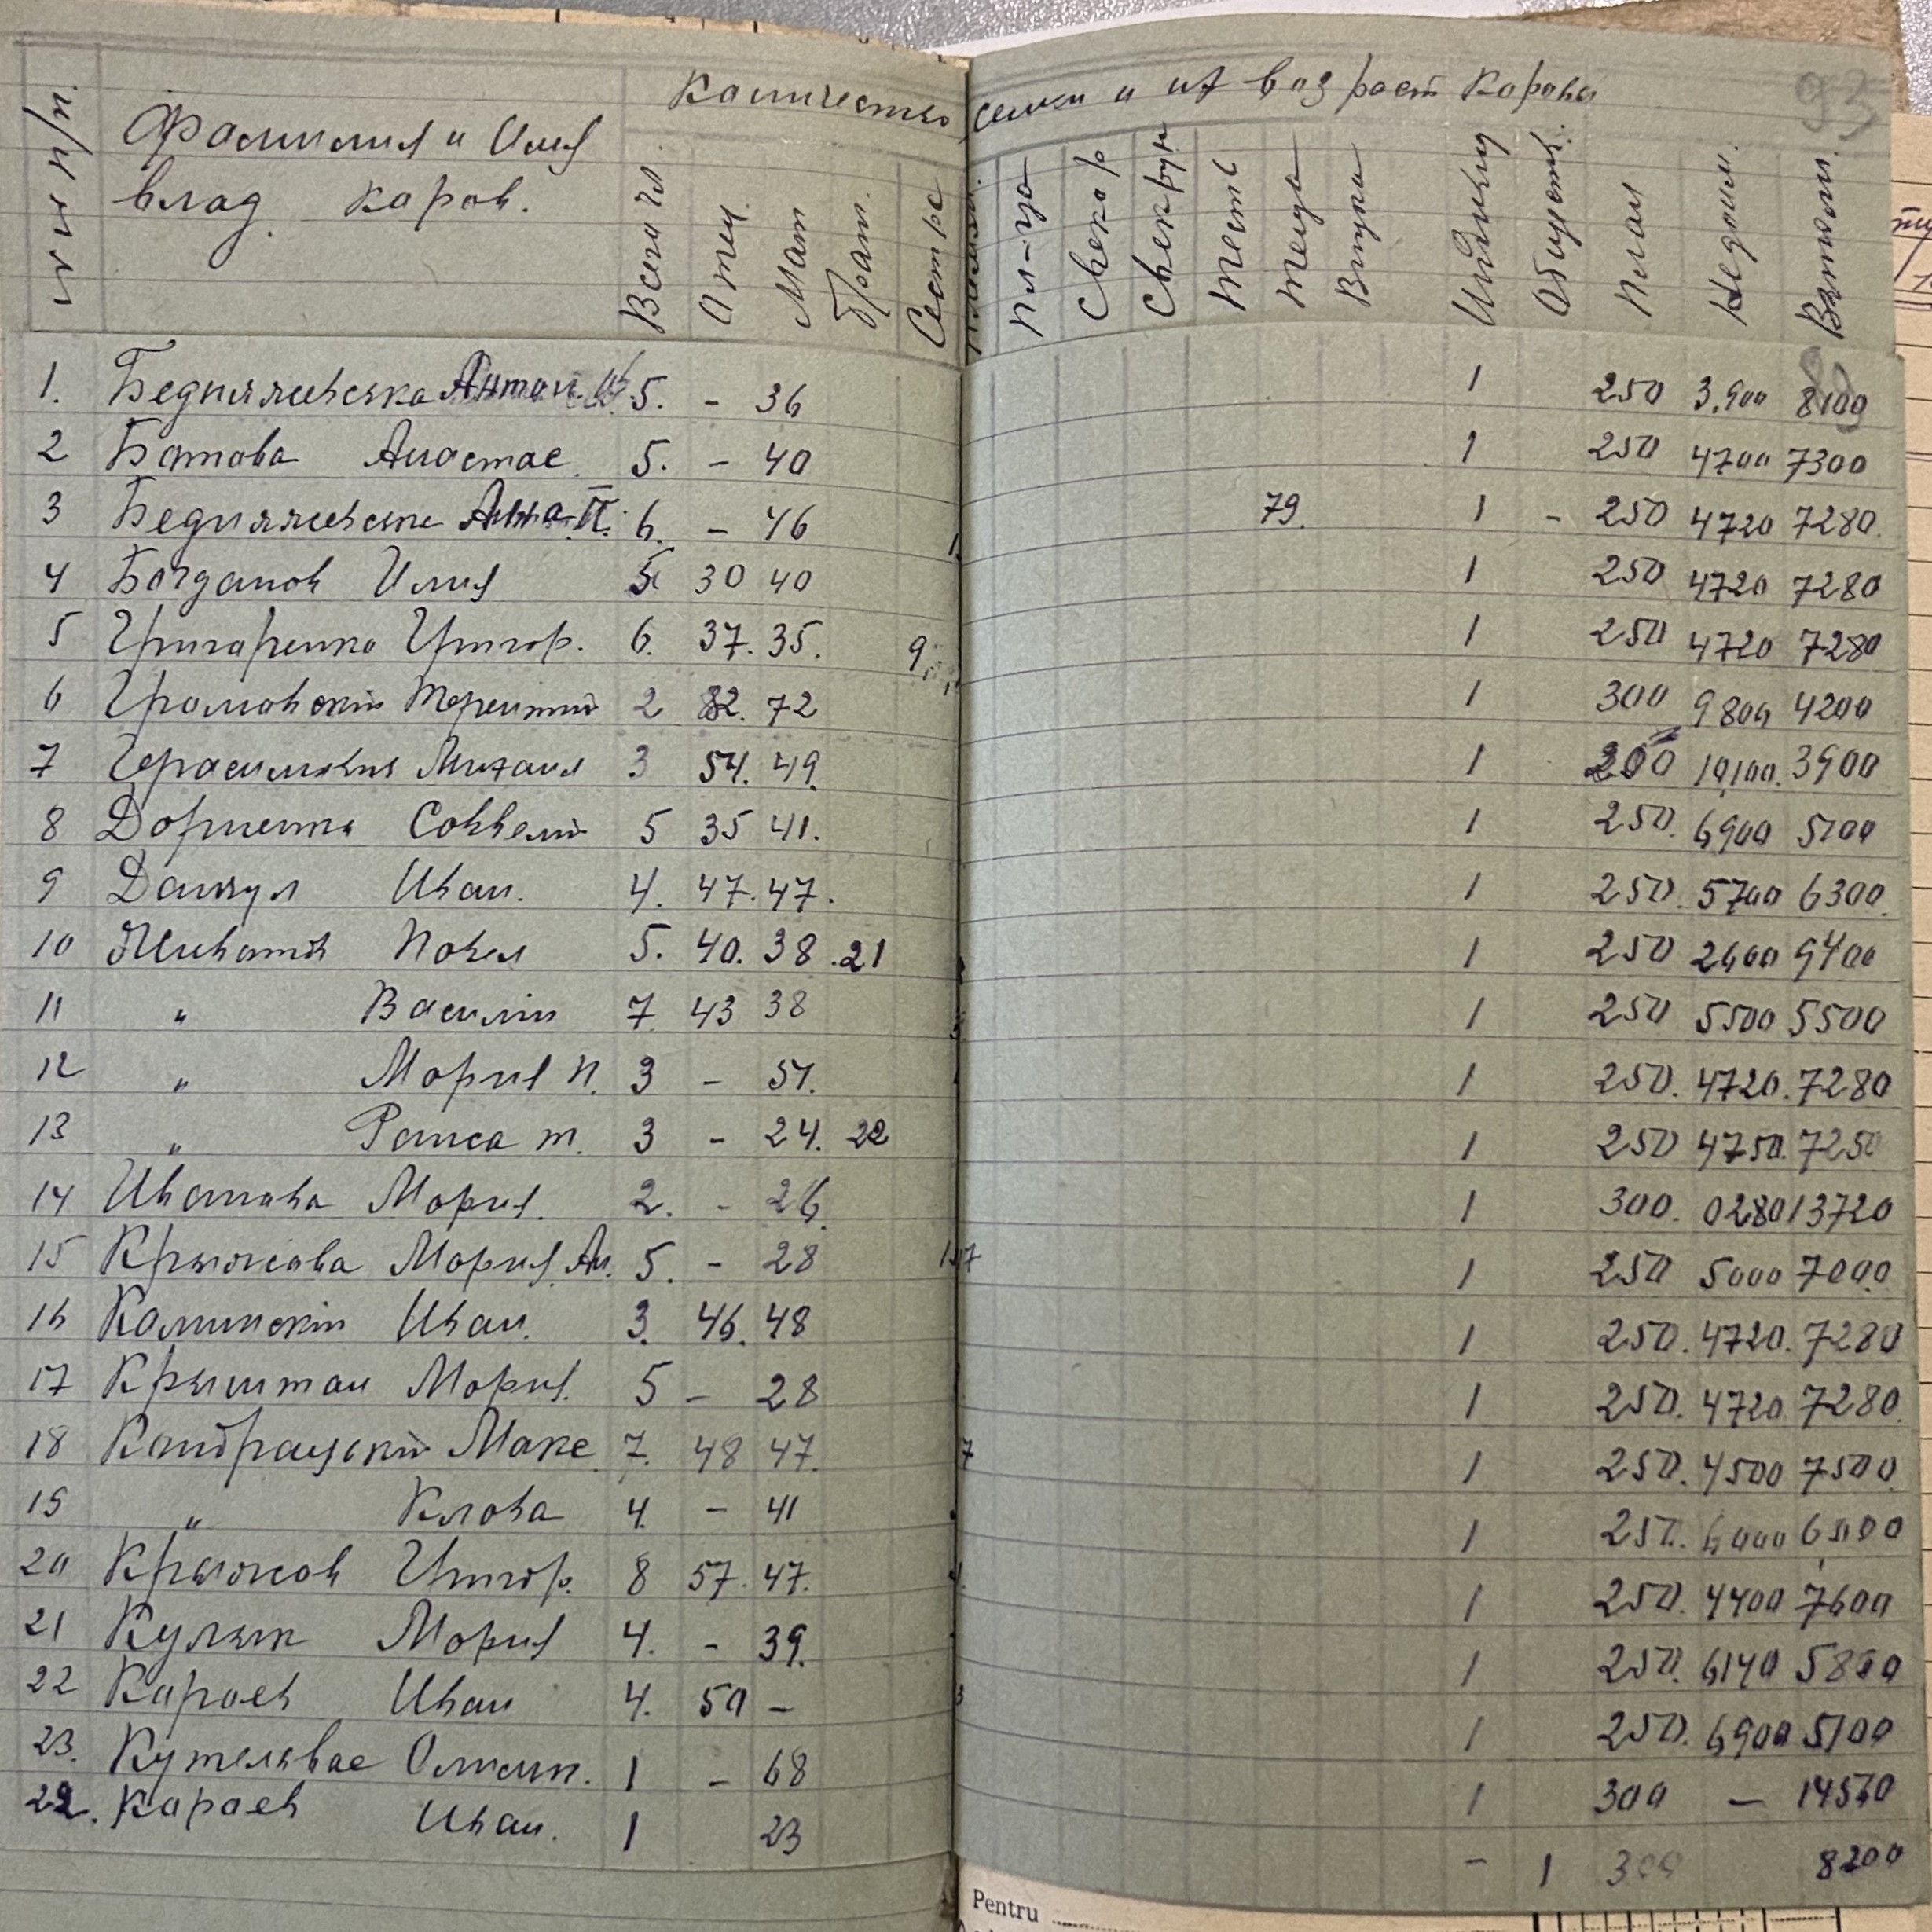 93
Количество семьи и их возраст Корова
№№ п/п. Фамилия и Имя влад. коров. Всего чл. Отец Мат Брат. Сестра Племян. Пл-ца Свекор Свекрун Тесть Теща Внука Индивид Общест. План Недоим. Выполн.
1. Бедняжевська Антон. 5. - 36 1 250 3.900 8100
2 Ботова Анастас. 5. - 40 1 250 4700 7300
3 Бедняжевски Анна П. 6. - 46 79. 1 - 250 4720 7280.
4 Богданов Илия 5 30 40 1 250 4720 7280
5 Григоренко Григор. 6. 37. 35. 9 1 250 4720 7280
6 Громовский Терентий 2 82. 72 1 300 9800 4200
7 Герасимовия Михаил 3 54. 49. 1 10,100. 3900
8 Дориенко Савелий 5 35 41. 1 250. 6900 5100
9 Данкул Иван. 4. 47. 47. 1 250. 5700 6300.
10 Живатов Павел 5. 40. 38. 21 1 250 2600 9400
11 " Василий 7 43 38 1 250 5500 5500
12 " Мария П. 3 - 51. 1 250. 4720. 7280
13 " Раиса Т. 3 - 24. 22 1 250 4750. 7250
14 Иванова Мария. 2. - 26. 1 300. 0280 13720
15 Крыжова Мария Ан. 5. - 28 1 250 5000 7000
16 Калинский Иван. 3. 46. 48 1 250. 4720. 7280
17 Крыштан Мария. 5 - 28 1 250. 4720 7280.
18 Кондрацкий Макс. 7. 48 47. 7 1 250. 4500 7500.
19 " Клова 4. - 41 1 250. 6000 6000
20 Крыжов Григор. 8 57. 47. 1 250. 4400 7600
21 Кулык Мария 4. - 39. 1 250. 6140 5860
22 Караев Иван 4. 50 - 3 1 250. 6900 5100
23. Кутелвас Олимп. 1 - 68 1 300 - 14570
Караев Иван. 1 23 - 1 300 8200
Pentru